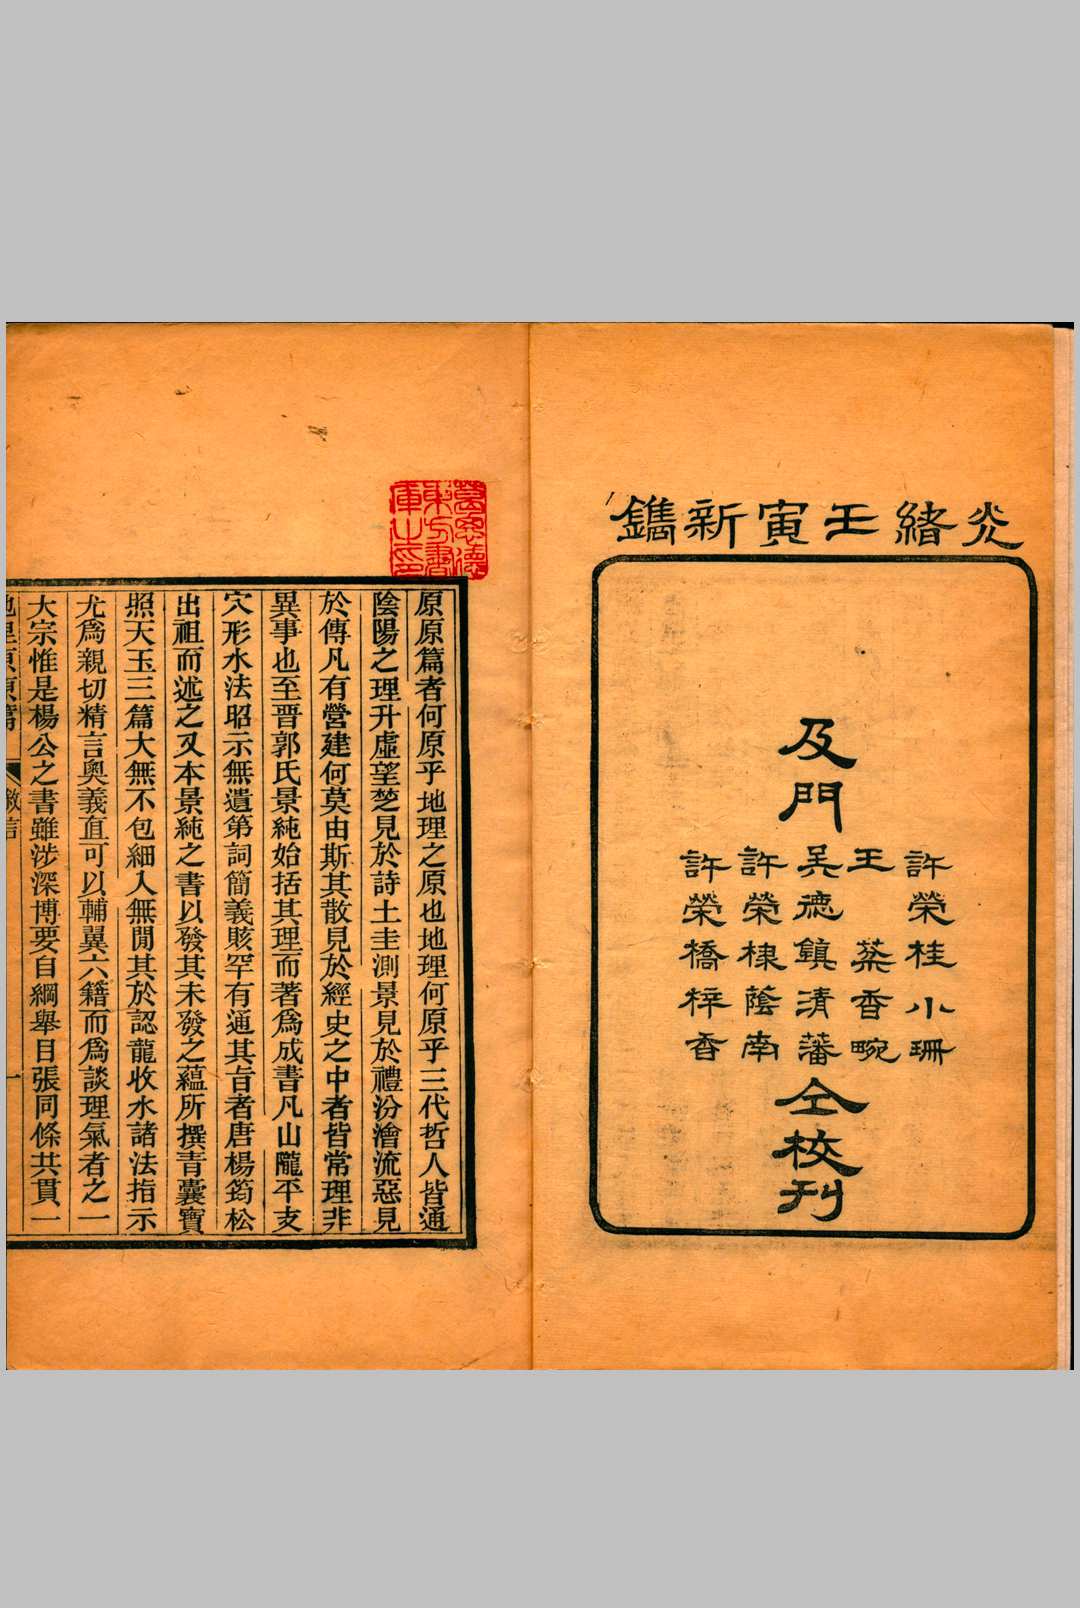 光緒壬寅新鐫
及門
許榮桂小珊
王蘂香畹
吴德鎮清藩
許榮棣蔭南
許榮橋梓香
仝校刊
葛思德
東方書
庫之印
原原篇者何原乎地理之原也地理何原乎三代哲人皆通
陰陽之理升虛望楚見於詩土圭測景見於禮汾澮流惡見
於傳凡有營建何莫由斯其散見於經史之中者皆常理非
異事也至晋郭氏景純始括其理而著爲成書凡山隴平支
穴形水法昭示無遺第詞簡義賅罕有通其旨者唐楊筠松
出祖而述之又本景純之書以發其未發之蘊所撰青囊寶
照天玉三篇大無不包細入無閒其於認龍收水諸法指示
尤爲親切精言奧義直可以輔翼六籍而爲談理氣者之一
大宗惟是楊公之書雖涉深博要自綱舉目張同條共貫一
地理原原篇
一